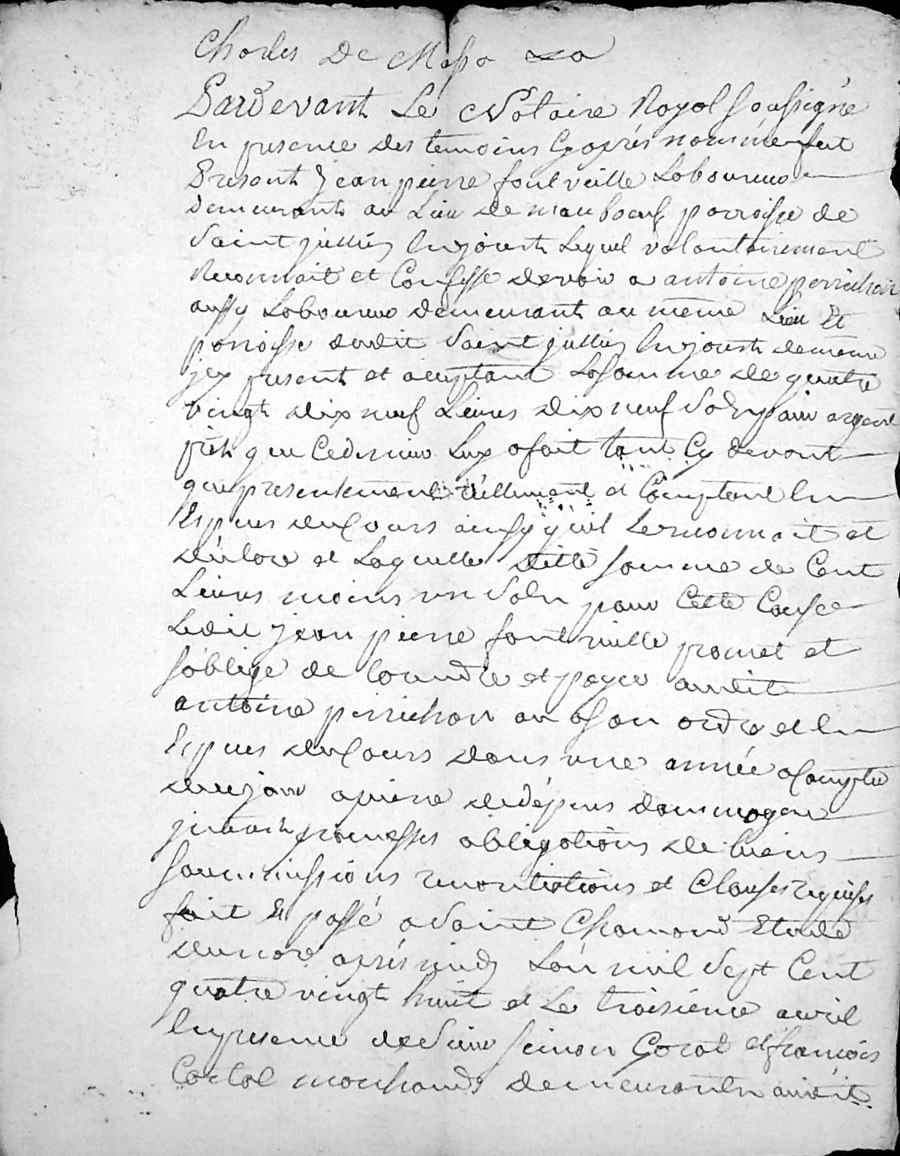 Charles De Masso
Pardevant Le Notaire Royal Soussigné
En presence des temoins cy après nommés fut
Present jean pierre fontvieille Laboureur
demeurant au Lieu de mauboeuf parroisse de
Saint jullien En joust Lequel volontairement
Reconnait et Confesse devoir a antoine perrichon
aussy Laboureur demeurant au même Lieu Et
parroisse dudit Saint jullien En joust demême
jcy present et aceptant La somme de quatre
vingt dix neuf Livres dix neuf Sols pour argent
prêt que Cedernier Luy a fait tant Cy devant
que presentement réellement et Comptant En
Especes du Cours ainsy qu'il Le reconnoit et
déclare et Laquelle ditte somme de Cent
Livres moins un Sol pour Cette Cause
Ledit jean pierre fontvieille promet et
s'oblige de rendre et payer audit
antoine perrichon ou a son ordre et En
Especes du Cours dans une année a Compter
de ce jour a peine de dépens dommages
jnterets promesses obligations de biens
soummissions renontiations et Clauses requises
fait Et passé a Saint Chamond Etude
du no.re après midy L'an mil Sept Cent
quatre vingt huit et Le troisième avril
En presence de Sieurs Simon Gorat et françois
marchands demeurants audit